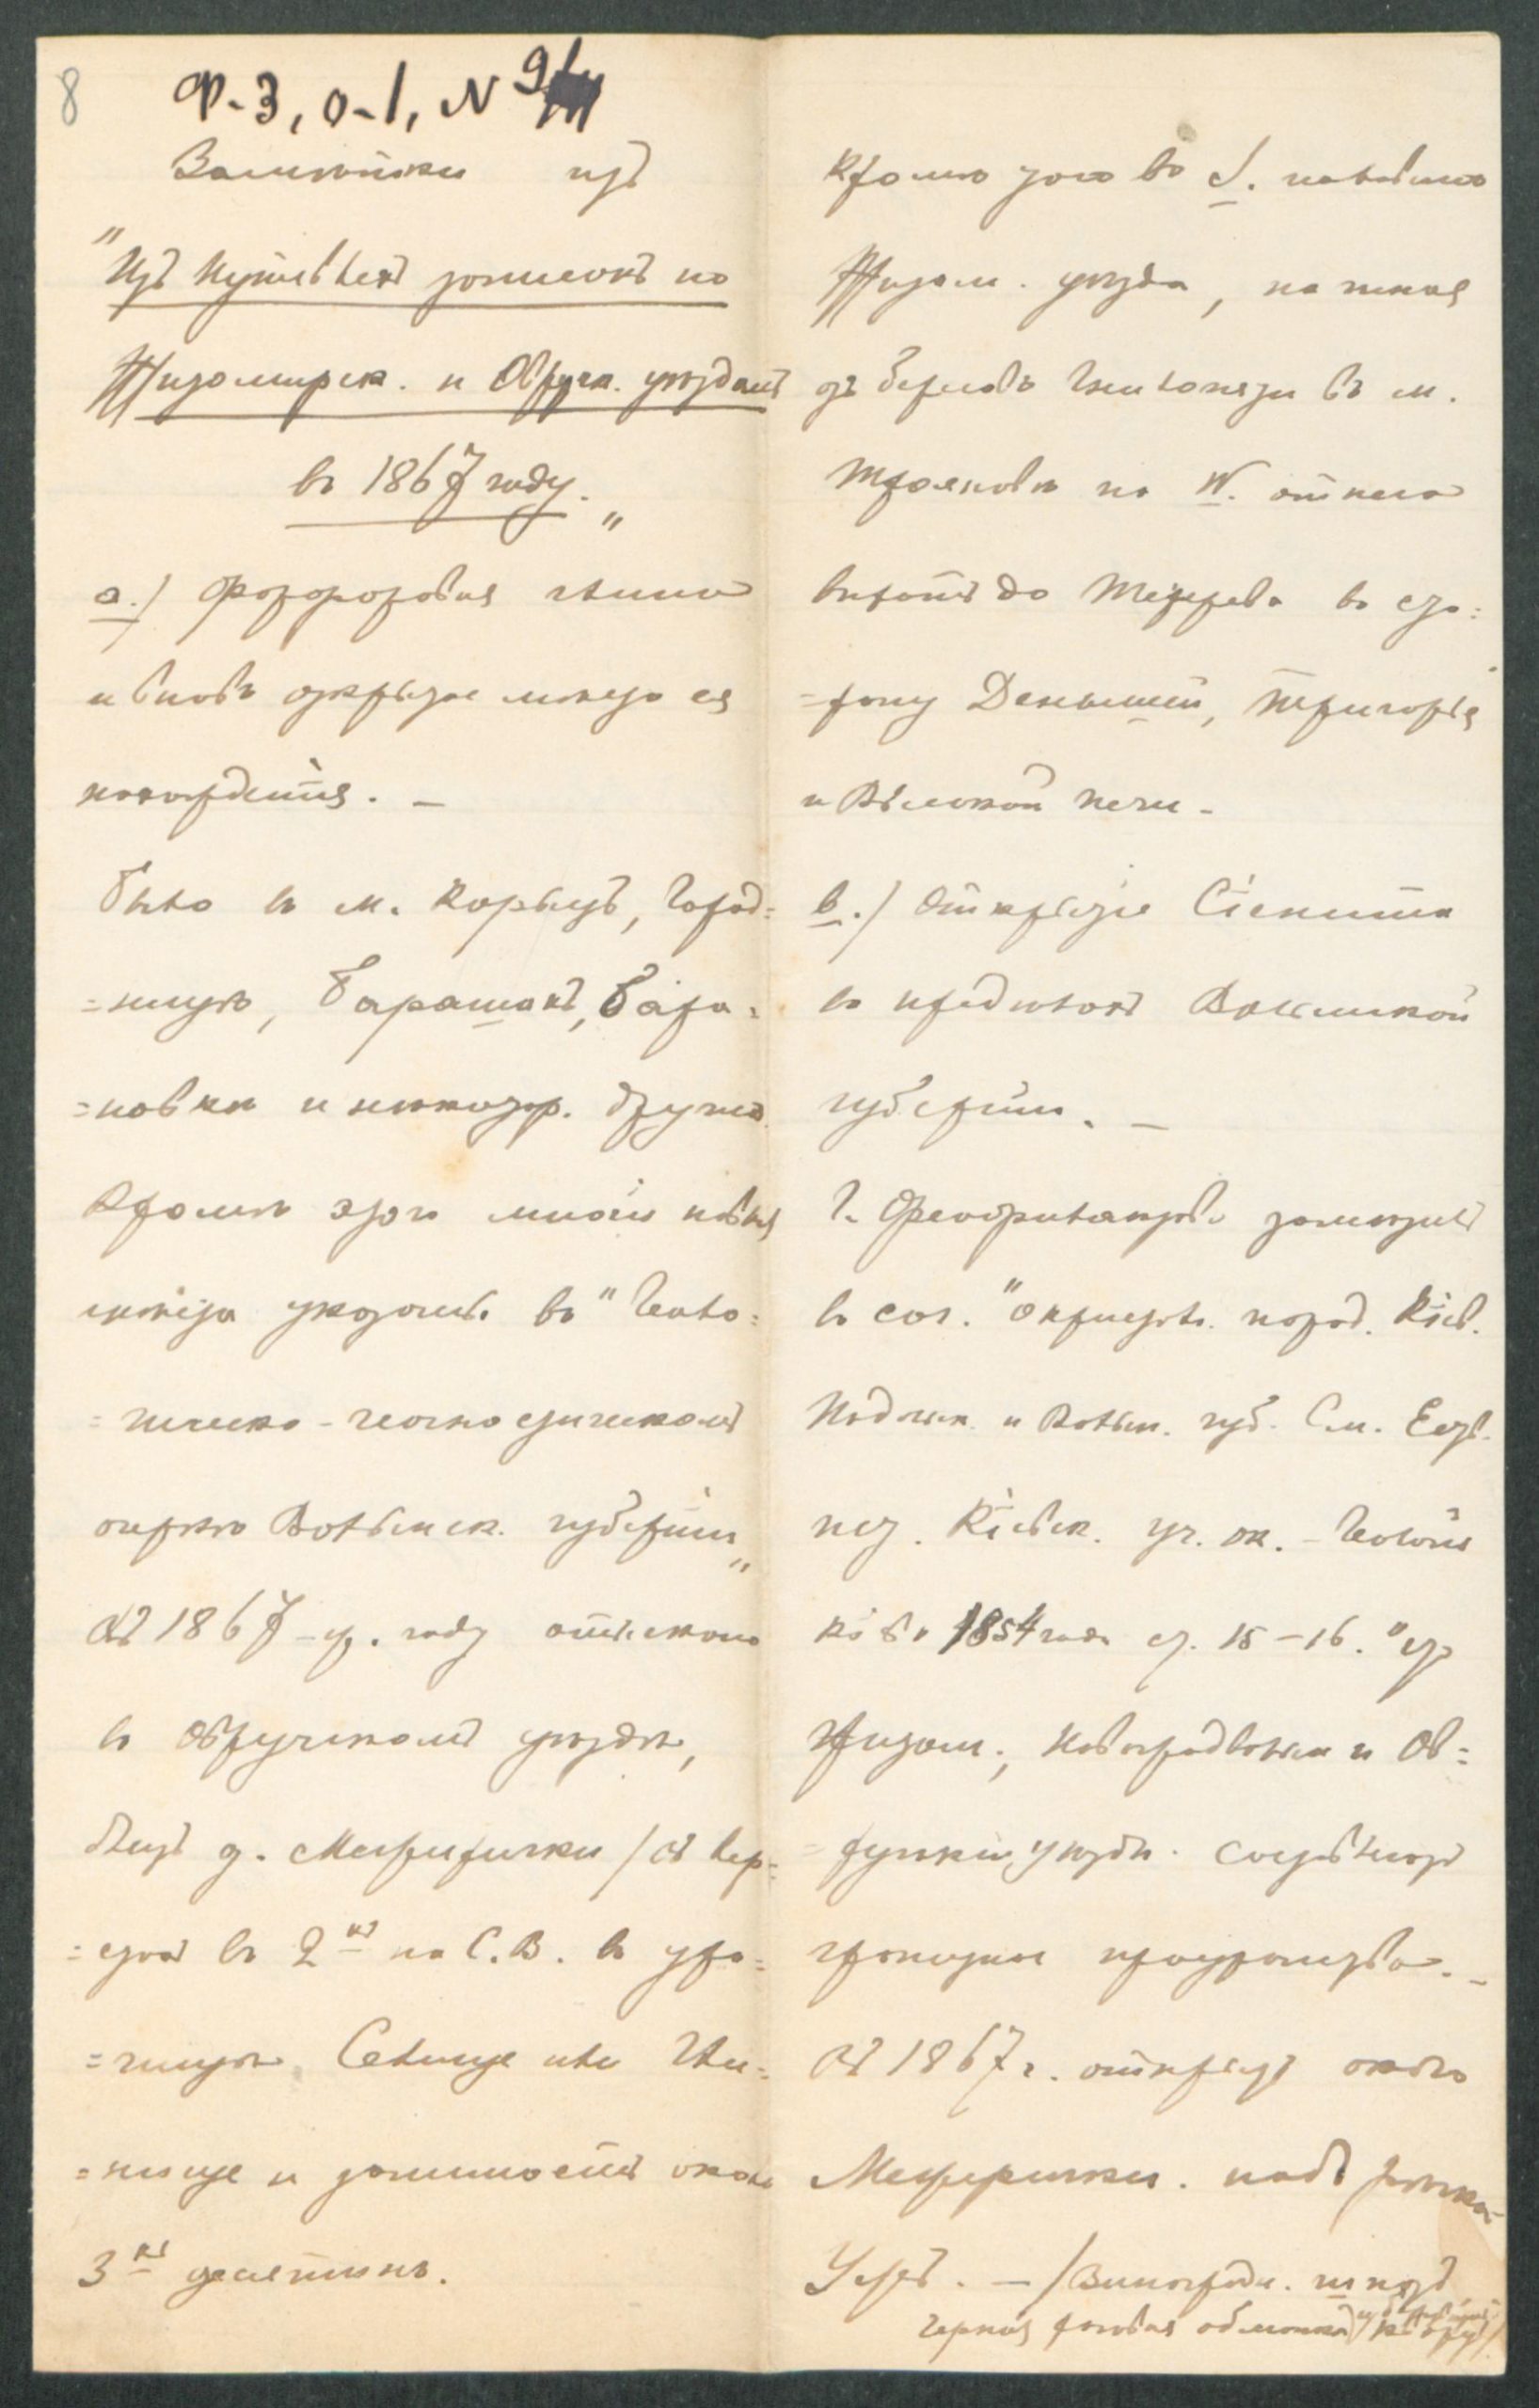 8
Ф-3, о-1, N 9
Замѣтки изъ
"Изъ путевыхъ замѣтокъ по
Житомирск. и Овруч. уѣздамъ
въ 1867 году."
а.) Фарфоровая глина
и вновь открытое мѣсто ея
нахожденія. —
Было въ м. Корыцѣ, Город=
=ницѣ, Барашахъ, Бара=
=новкѣ и нѣкотор. другихъ
Кромѣ этого многія новыя
мѣста указаны въ "Геоло=
=гическо-геогностическомъ
очеркѣ Волынск. губерніи"
Въ 1867 -м. году отыскано
въ Овручскомъ уѣздѣ,
близъ д. Межирички / въ вер=
=стахъ въ 2хъ на С.В. въ уро=
=чищѣ Селище или Гли=
=нище и занимаетъ около
3хъ десятинъ.
Кромѣ того въ S. половинѣ
Житом. уѣзда, начиная
отъ береговъ Гнилопяти въ м.
Трояновѣ на W. отъ него
вплоть до Тетерева въ сто=
=рону Денышей, Тригорья
и Высокой печи.
в.) Открытіе Сіенита
въ предѣлахъ Волынской
губерніи. —
Г. Феофилактовъ замѣтилъ
въ соч. "О кристал. пород. Кіев.
Подольск. и Волын. губ. См. Ест.
ист. Кіевск. уч. ок. - Геологія
Кіевъ 1854 года ст. 15-16." въ
Житом., Новоградволын. и Ов=
=ручскій уѣзды. составляютъ
гранитное пространство. —
Въ 1867 г. открытъ около
Межирички. надъ рѣчкой
Уборть. — / Виноградн. шпатъ
черная роговая обманка